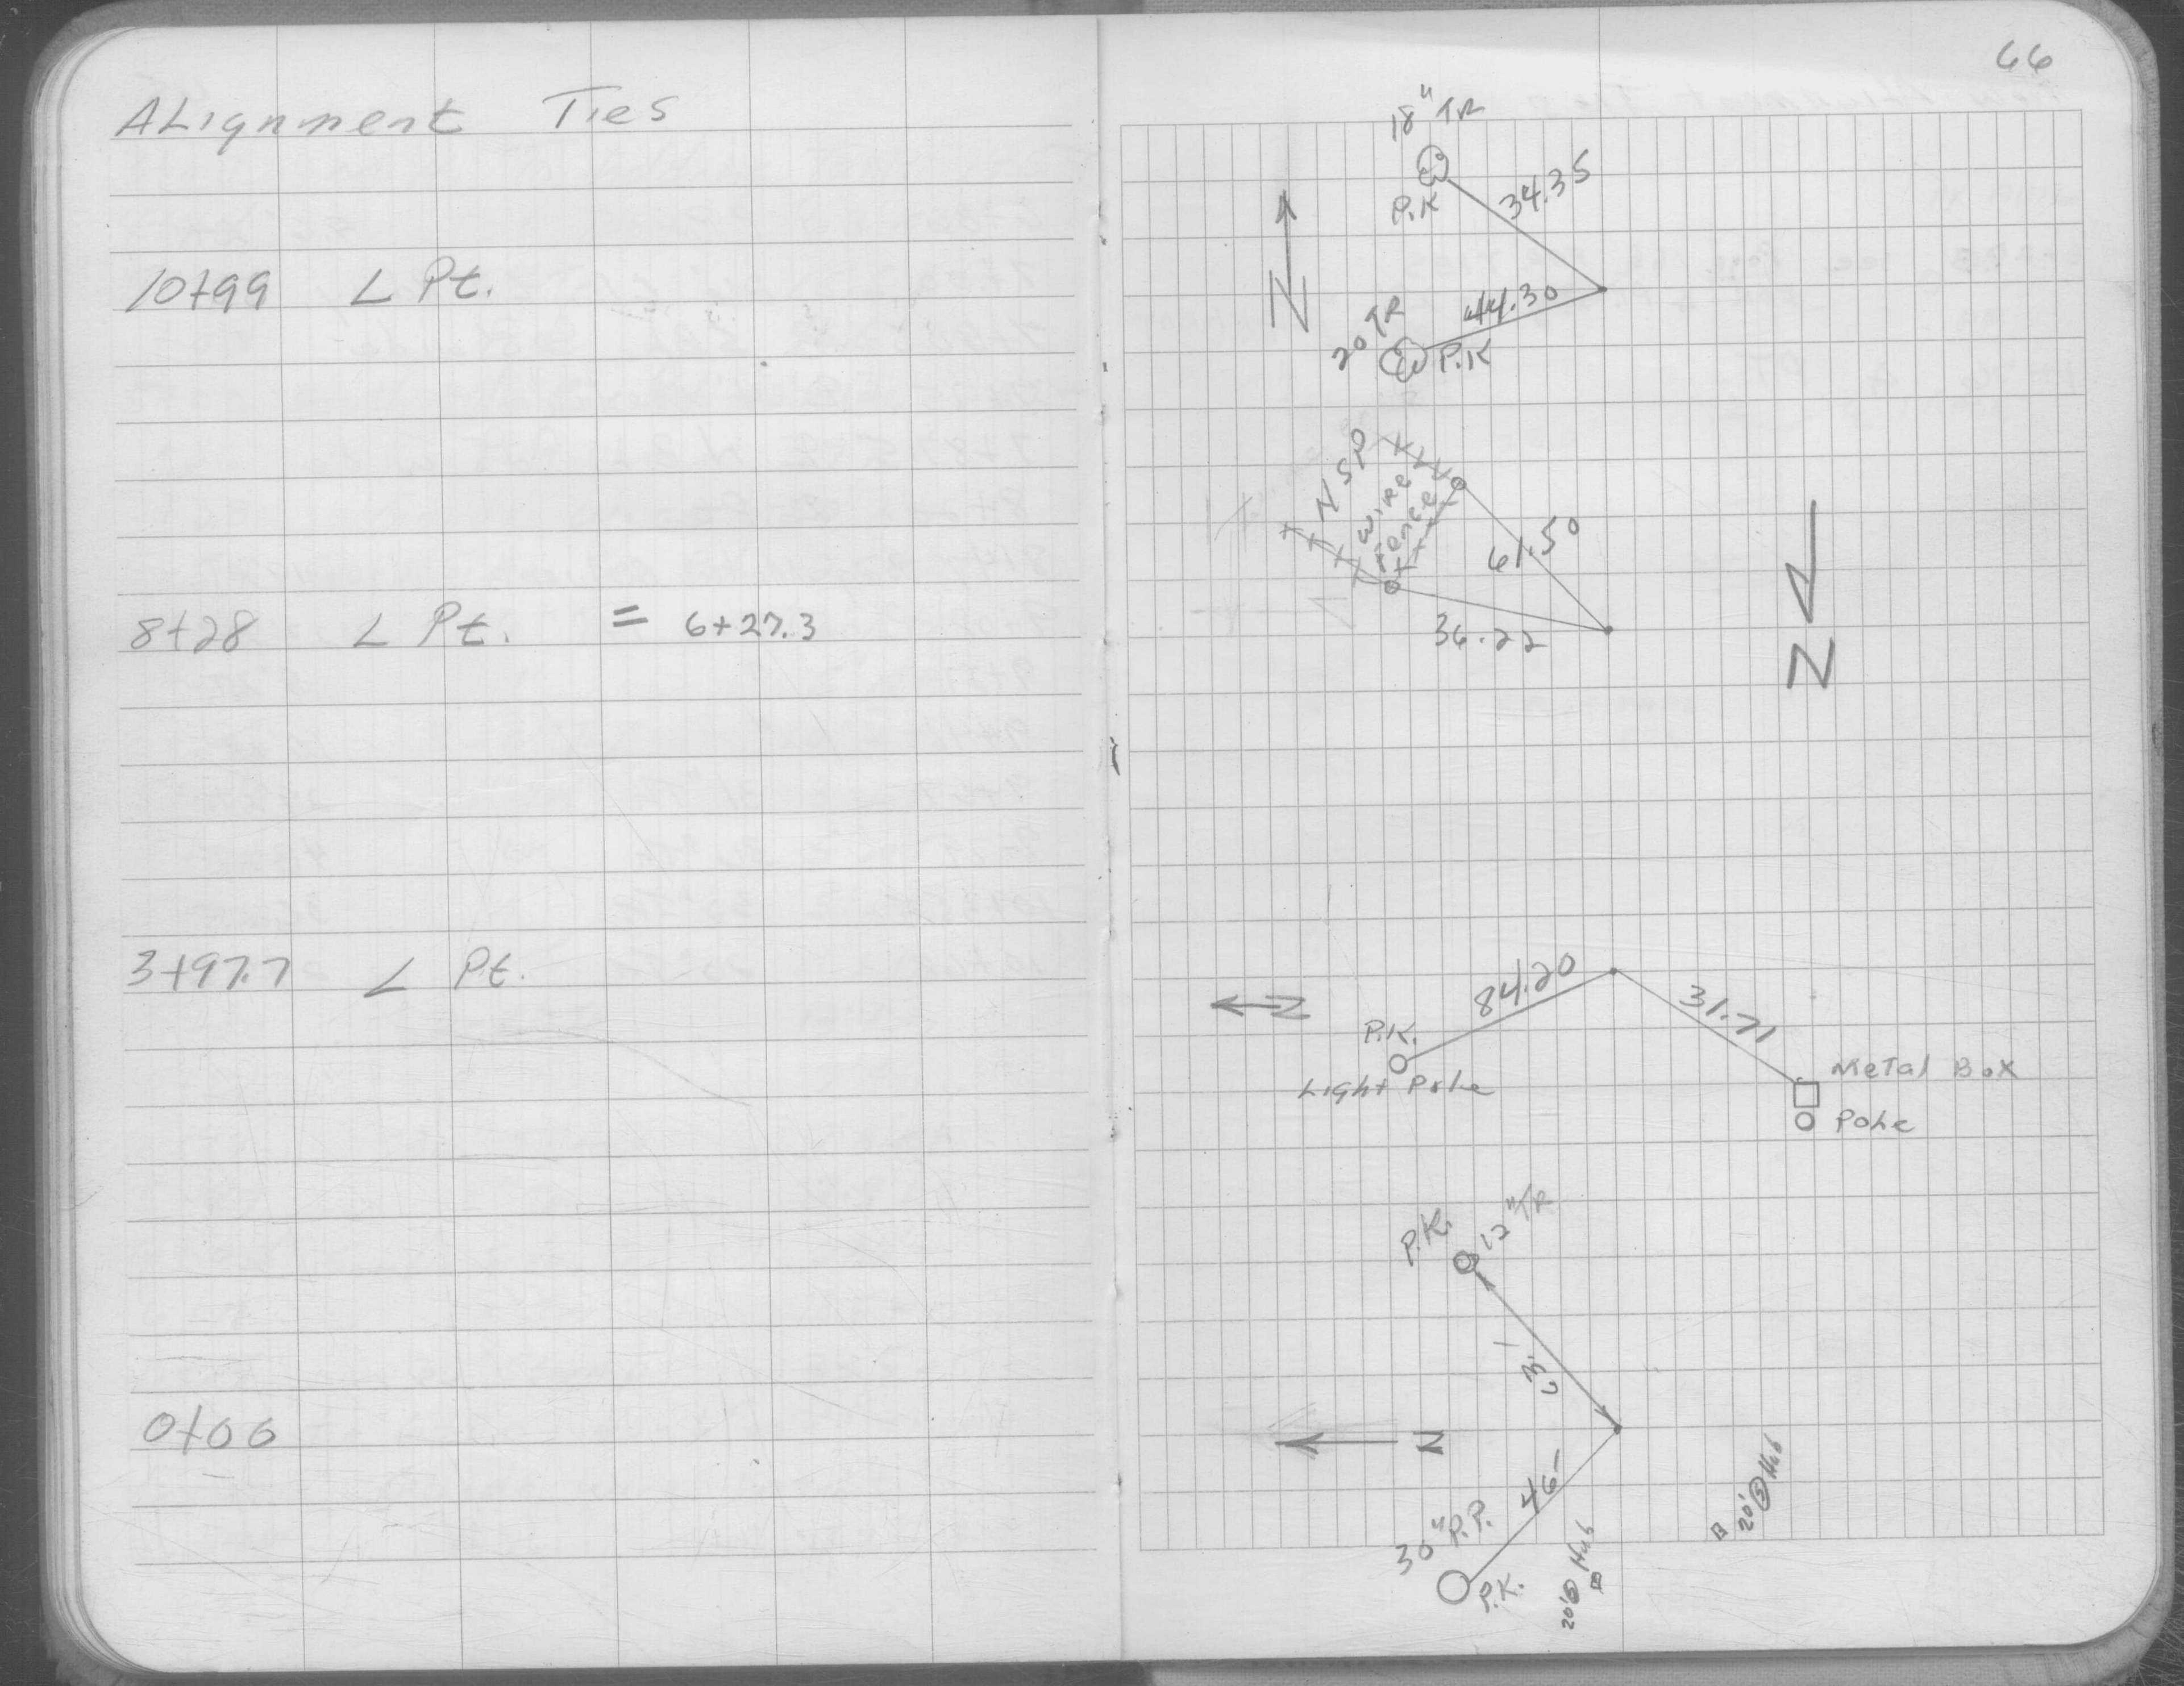 66
ALignment Ties
10+99 L Pt.
8+28 L Pt. = 6+27.3
3+97.7 L Pt.
0+00
18" TR
P.K
34.35
N
44.30
20 TR
P.K
NSP
wire
Fence
61.50
36.22
N
84.20
31.71
N
P.K.
Light Pole
Metal Box
Pole
P.K.
12" TR
63'
N
46'
30" P.P.
P.K.
Hub
20' Hub